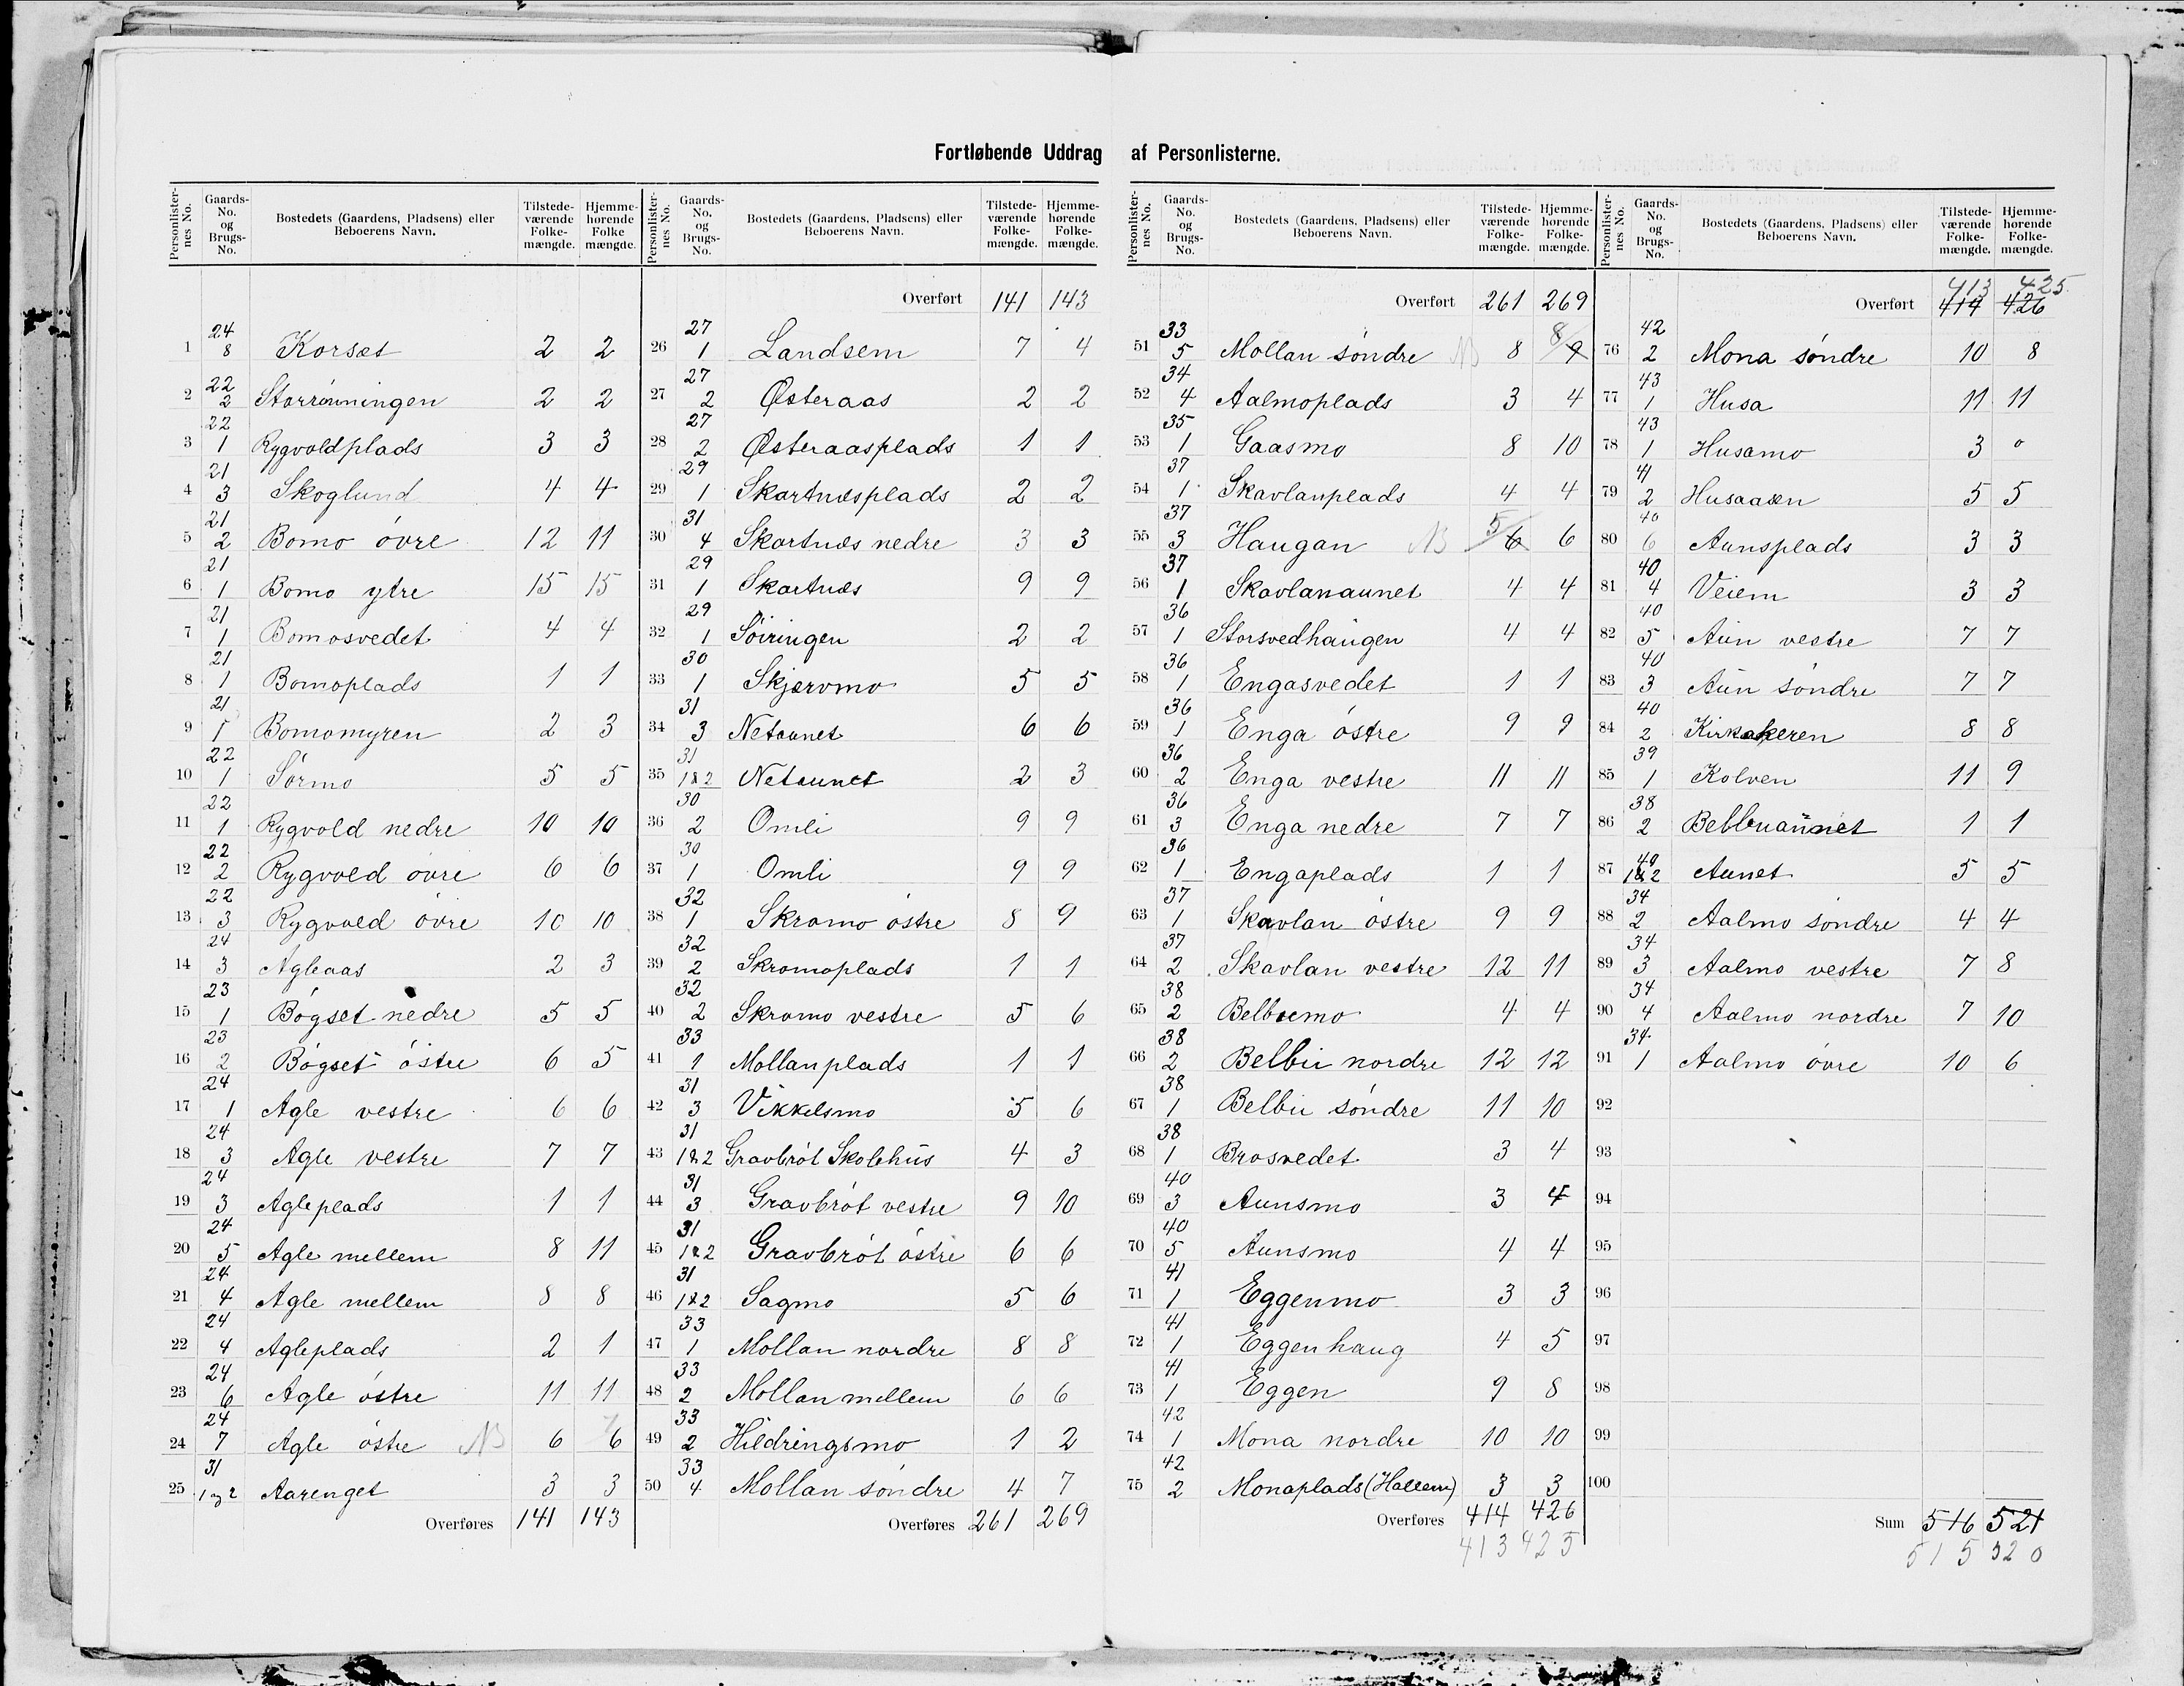 Fortløbende Uddrag af Personlisterne.
Personlister-nes No. Gaards-No. og Brugs-No. Bostedets (Gaardens, Pladsens) eller Beboerens Navn. Tilstede-værende Folke-mængde. Hjemme-hørende Folke mængde.
1 24/8 Korset 2 2
2 22/2 Storrönningen 2 2
3 22/1 Rygvoldplads 3 3
4 21/3 Skoglund 4 4
5 21/2 Bomo óvre 12 11
6 21/1 Bomo ytre 15 15
7 21/1 Bomosvedet 4 4
8 21/1 Bomoplads 1 1
9 21/1 Bomomyren 2 3
10 22/1 Sórmo 5 5
11 22/1 Rygvold nedre 10 10
12 22/2 Rygvold óvre 6 6
13 22/3 Rygvold óvre 10 10
14 24/3 Agleaas 2 3
15 23/1 Bógset nedre 5 5
16 23/2 Bógset óstre 6 5
17 24/1 Agle vestre 6 6
18 24/3 Agle vestre 7 7
19 24/3 Agleplads 1 1
20 24/5 Agle mellem 8 11
21 24/4 Agle mellem 8 8
22 24/4 Agleplads 2 1
23 24/6 Agle óstre 11 11
24 24/7 Agle óstre NB 6 6
25 31/1 og 2 Aarenget 3 3
Overføres 141 143
Personlister-nes No. Gaards-No. og Brugs-No. Bostedets (Gaardens, Pladsens) eller Beboerens Navn. Tilstede-værende Folke-mængde. Hjemme-hørende Folke-mængde.
Overført 141 143
26 27/1 Landsem 7 4
27 27/2 Østeraas 2 2
28 27/2 Østeraasplads 1 1
29 29/1 Skartnæsplads 2 2
30 31/4 Skartnæs nedre 3 3
31 29/1 Skartnæs 9 9
32 29/1 Sóiringen 2 2
33 30/1 Skjæromo 5 5
34 31/3 Netaunet 6 6
35 31/1&2 Netaunet 2 3
36 30/2 Omli 9 9
37 30/1 Omli 9 9
38 32/1 Skromo óstre 8 9
39 32/2 Skromoplads 1 1
40 32/2 Skromo vestre 5 6
41 33/1 Mollanplads 1 1
42 31/3 Vikkelsmo 5 6
43 31/1&2 Gravbrót Skolehus 4 3
44 31/3 Gravbrót vestre 9 10
45 31/1&2 Gravbrót óstre 6 6
46 31/1&2 Sagmo 5 6
47 33/1 Mollan nordre 8 8
48 33/2 Mollan mellem 6 6
49 33/2 Hildringsmo 1 2
50 33/4 Mollan sóndre 4 7
Overføres 261 269
Personlister-nes No. Gaards-No. og Brugs-No. Bostedets (Gaardens, Pladsens) eller Beboerens Navn. Tilstede-værende Folke-mængde. Hjemme-hørende Folke-mængde.
Overført 261 269
51 33/5 Mollan sóndre NB 8 8 9
52 34/4 Aalmoplads 3 4
53 35/1 Gaasmo 8 10
54 37/1 Skavlanplads 4 4
55 37/3 Haugan NB 5 6 6
56 37/1 Skavlanaunet 4 4
57 36/1 Storsvedhaugen 4 4
58 36/1 Engasvedet 1 1
59 36/1 Enga óstre 9 9
60 36/2 Enga vestre 11 11
61 36/3 Enga nedre 7 7
62 36/1 Engaplads 1 1
63 37/1 Skavlan óstre 9 9
64 37/2 Skavlan vestre 12 11
65 38/2 Belbuemo 4 4
66 38/2 Belbu nordre 12 12
67 38/1 Belbu sóndre 11 10
68 38/1 Brosvedet 3 4
69 40/3 Aunsmo 3 4
70 40/5 Aunsmo 4 4
71 41/1 Eggenmo 3 3
72 41/1 Eggenhaug 4 5
73 41/1 Eggen 9 8
74 42/1 Mona nordre 10 10
75 42/2 Monaplads (Hallem) 3 3
Overføres 414 426
413 425
Personlister-nes No. Gaards-No. og Brugs-No. Bostedets (Gaardens, Pladsens) eller Beboerens Navn. Tilstede-værende Folke-mængde. Hjemme-hørende Folke-mængde.
413 425
Overført 414 426
76 42/2 Mona sóndre 10 8
77 43/1 Husa 11 11
78 43/1 Husamo 3 0
79 41/2 Husaasen 5 5
80 40/6 Aunsplads 3 3
81 40/4 Veiem 3 3
82 40/5 Aun vestre 7 7
83 40/3 Aun sóndre 7 7
84 40/2 Kirkakeren 8 8
85 39/1 Kolven 11 9
86 38/2 Belbuaunet 1 1
87 40/1&2 Aunet 5 5
88 34/2 Aalmo sóndre 4 4
89 34/3 Aalmo vestre 7 8
90 34/4 Aalmo nordre 7 10
91 34/1 Aalmo óvre 10 6
92
93
94
95
96
97
98
99
100
Sum 516 521
515 520